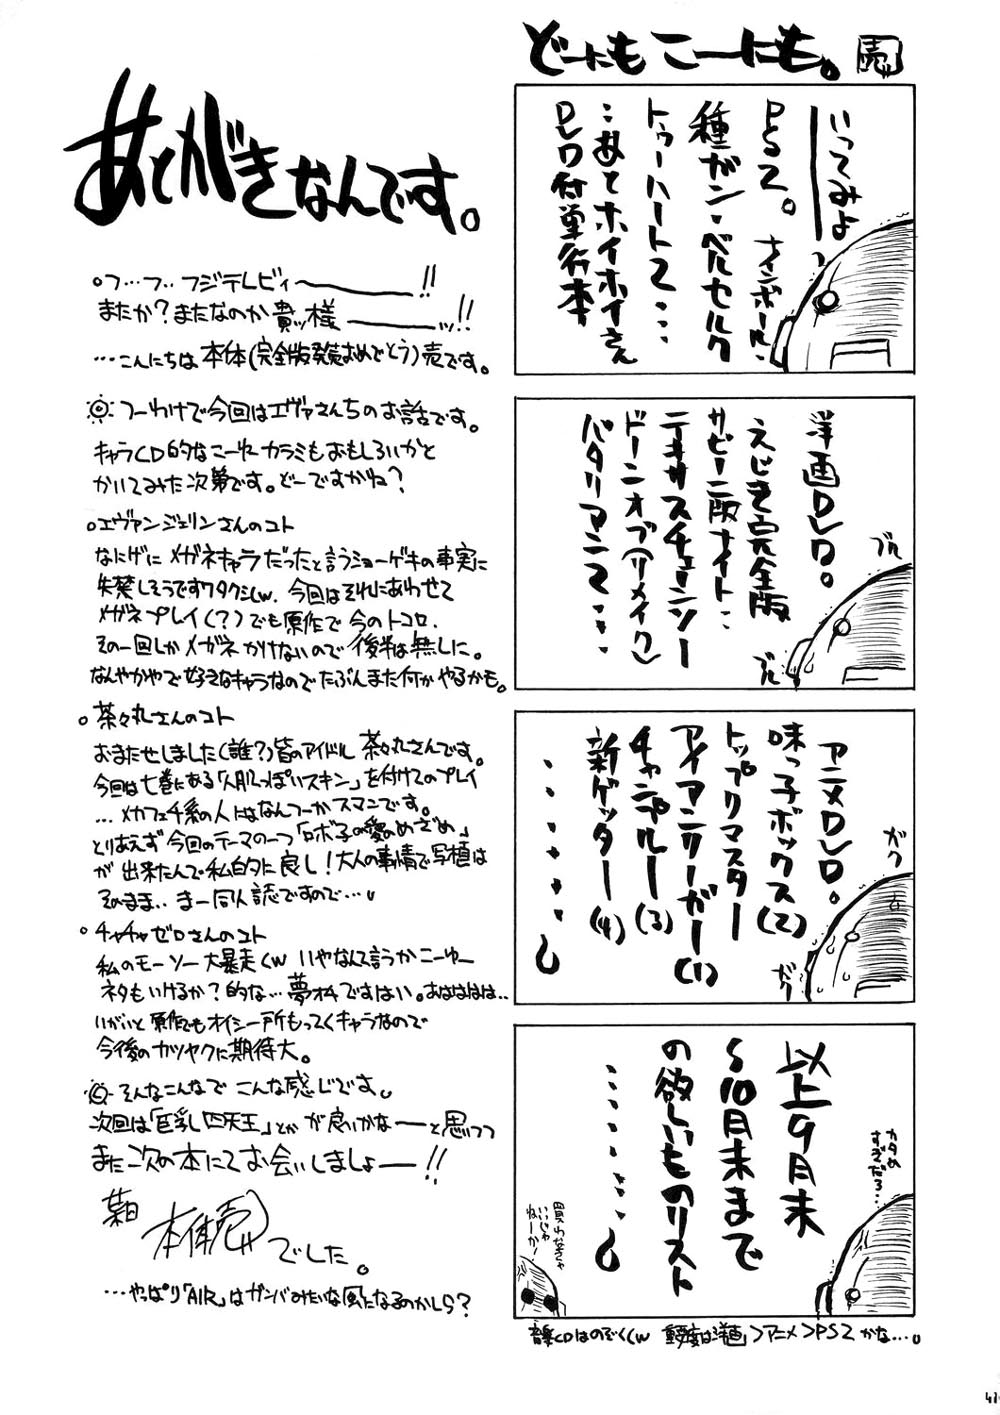 どーにもこーにも。売
いってみよー
PS2。ナインボール・
種ガン・ベルセルク
トゥーハート2・・・
・・・あとホイホイさん
DVD付単行本
洋画DVD。
えじき完全版
サビーニ版ナイト・・
テキサスチェーンソー
ドーンオブ(リメイク)
バタリアン2・・・
ブル
ブル
アニメDVD。
味っ子ボックス(2)
トップリマスター
アイアンリーガー(1)
チャンプルー(3)
新ゲッター(4)
・・・・・・。
ガク
ガク
以上9月末
〜10月末まで
の欲しいものリスト
・・・・・・。
カタめ
すぎだろ…
買わなきゃ
いいじゃ
ねーか!
音楽CDはのぞく(w 重要度は洋画>アニメ>PS2かな…。
あとがきなんです。
○フ…フ‥フジテレビィ〜――!!
またか?またなのか貴ッ様――ッ!!
…こんにちは本体(完全版発売おめでとう)売です。
◎つーわけで今回はエヴァさんちのお話です。
キャラCD的なこーゆーカラミもおもしろいかと
かいてみた次第です。どーですかね?
○エヴァンジェリンさんのコト
なにげにメガネキャラだったと言うショーゲキの事実に
失禁しそうですワタクシ(w。今回はそれにあわせて
メガネプレイ(?)でも原作で今のトコロ、
その一回しかメガネかけないので後半は無しに。
なんやかやで好きなキャラなのでたぶんまた何かやるかも。
○茶々丸さんのコト
おまたせしました(誰?)皆のアイドル茶々丸さんです。
今回は七巻にある「人肌っぽいスキン」を付けてのプレイ
…メカフェチ系の人にはなんつーかスマンです。
とりあえず今回のテーマの一つ「ロボ子の愛のめざめ」
が出来たんで私的に良し!大人の事情で写植は
そのまま‥まー同人誌ですので…。
○チャチャゼロさんのコト
私のモーソー大暴走(w いやなんて言うかこーゆー
ネタもいけるか?的な…夢オチですはい。あはははは‥
いがいと原作でもオイシー所もってくキャラなので
今後のカツヤクに期待大。
◎そんなこんなでこんな感じです。
次回は「巨乳四天王」とかが良いかなーーと思いつつ
また次の本にてお会いしましょーー!!
本体売でした。
…やっぱり「AIR」はガンバみたいな風になるのかしら?
41